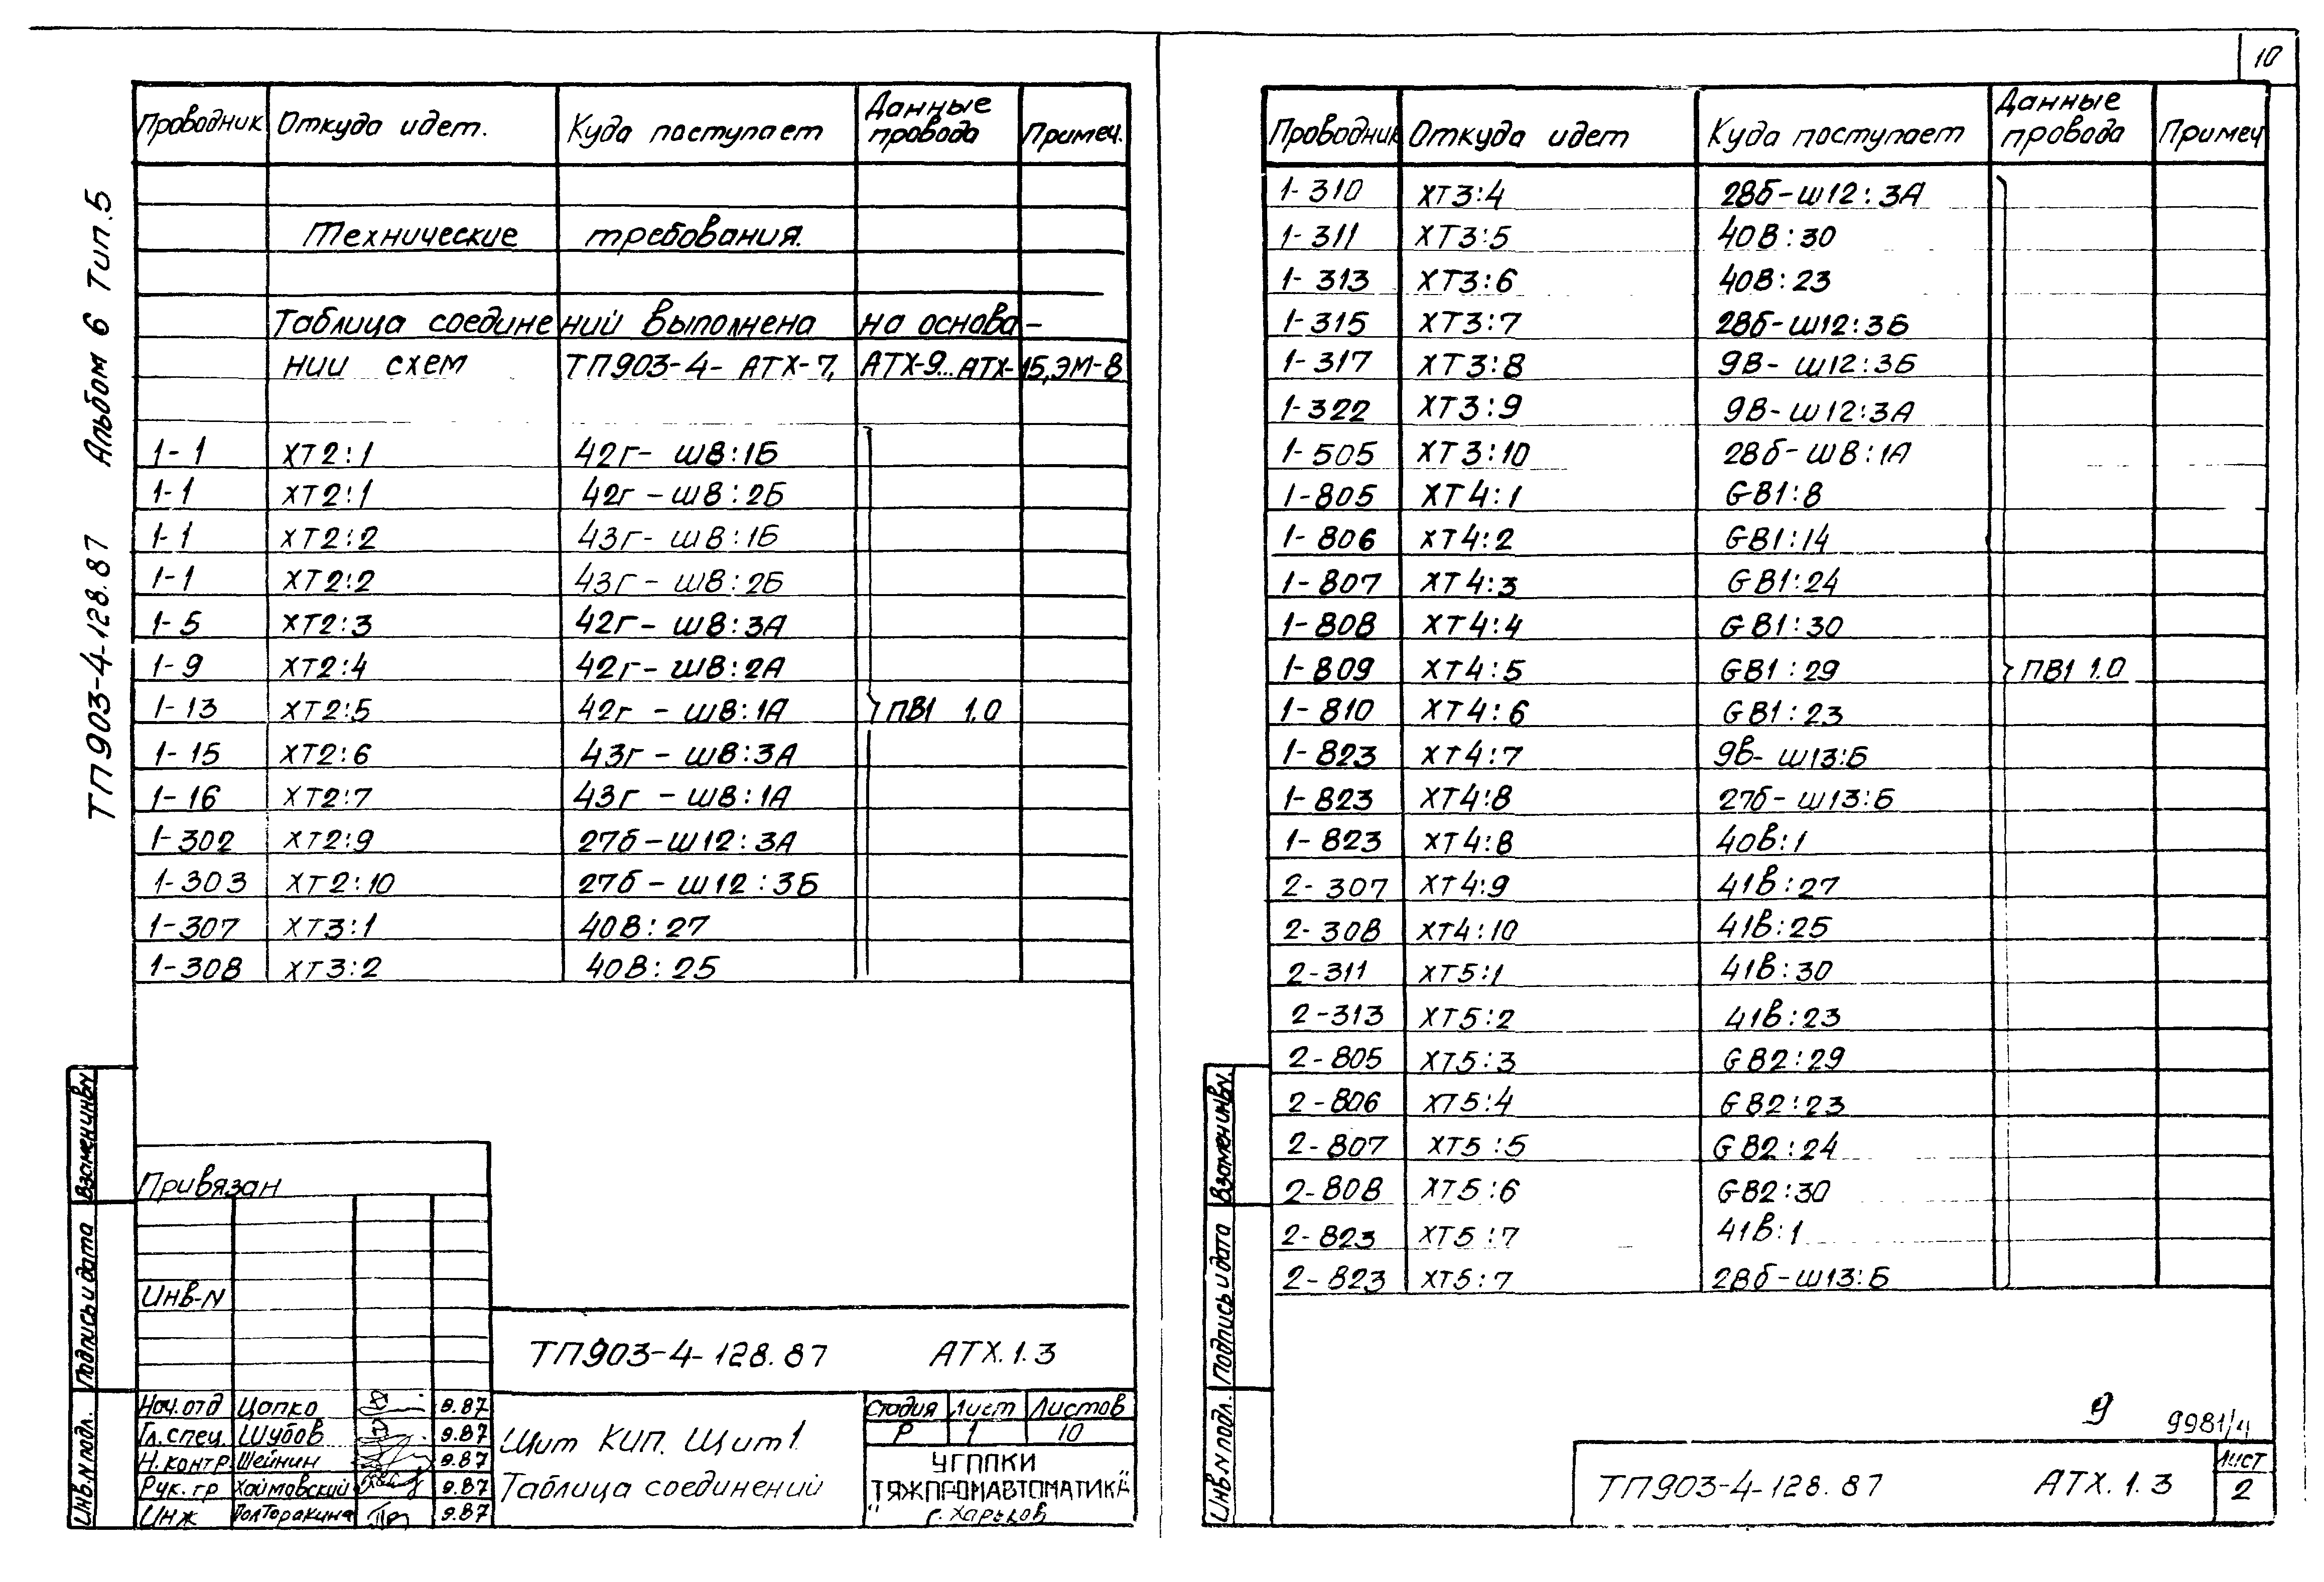 10
ТП903-4-128.87 Альбом 6 Тип.5
Проводник Откуда идет. Куда поступает Данные провода Примеч.
Технические требования.
Таблица соединений выполнена на основа-
нии схем ТП903-4- АТХ-7, АТХ-9...АТХ-15, ЭМ-8
1-1 ХТ2:1 42г-Ш8:1Б
1-1 ХТ2:1 42г-Ш8:2Б
1-1 ХТ2:2 43г-Ш8:1Б
1-1 ХТ2:2 43г-Ш8:2Б
1-5 ХТ2:3 42г-Ш8:3А
1-9 ХТ2:4 42г-Ш8:2А
1-13 ХТ2:5 42г-Ш8:1А ПВ1 1.0
1-15 ХТ2:6 43г-Ш8:3А
1-16 ХТ2:7 43г-Ш8:1А
1-302 ХТ2:9 27б-Ш12:3А
1-303 ХТ2:10 27б-Ш12:3Б
1-307 ХТ3:1 40В:27
1-308 ХТ3:2 40В:25
Взамен инв.N
Подпись и дата
Инв.N подл.
Привязан
Инв-N
ТП903-4-128.87 АТХ.1.3
Нач.отд Цапко 9.87
Гл.спец. Шубов 9.87
Н.контр. Шейнин 9.87
Рук.гр Хаймовский 9.87
Инж Полторакина 9.87
Щит КИП. Щит 1.
Таблица соединений
Стадия Лист Листов
Р 1 10
УГППКИ
"ТЯЖПРОМАВТОМАТИКА"
г. Харьков
Проводник Откуда идет Куда поступает Данные провода Примеч
1-310 ХТ3:4 28б-Ш12:3А
1-311 ХТ3:5 40В:30
1-313 ХТ3:6 40В:23
1-315 ХТ3:7 28б-Ш12:3Б
1-317 ХТ3:8 9В-Ш12:3Б
1-322 ХТ3:9 9В-Ш12:3А
1-505 ХТ3:10 28б-Ш8:1А
1-805 ХТ4:1 GB1:8
1-806 ХТ4:2 GB1:14
1-807 ХТ4:3 GB1:24
1-808 ХТ4:4 GB1:30
1-809 ХТ4:5 GB1:29 ПВ1 1.0
1-810 ХТ4:6 GB1:23
1-823 ХТ4:7 9в-Ш13:Б
1-823 ХТ4:8 27б-Ш13:Б
1-823 ХТ4:8 40в:1
2-307 ХТ4:9 41в:27
2-308 ХТ4:10 41в:25
2-311 ХТ5:1 41в:30
2-313 ХТ5:2 41в:23
2-805 ХТ5:3 GB2:29
2-806 ХТ5:4 GB2:23
2-807 ХТ5:5 GB2:24
2-808 ХТ5:6 GB2:30
2-823 ХТ5:7 41в:1
2-823 ХТ5:7 28б-Ш13:Б
Взамен инв.N
Подпись и дата
Инв.N подл.
9 9981/4
ТП903-4-128.87 АТХ.1.3
Лист
2